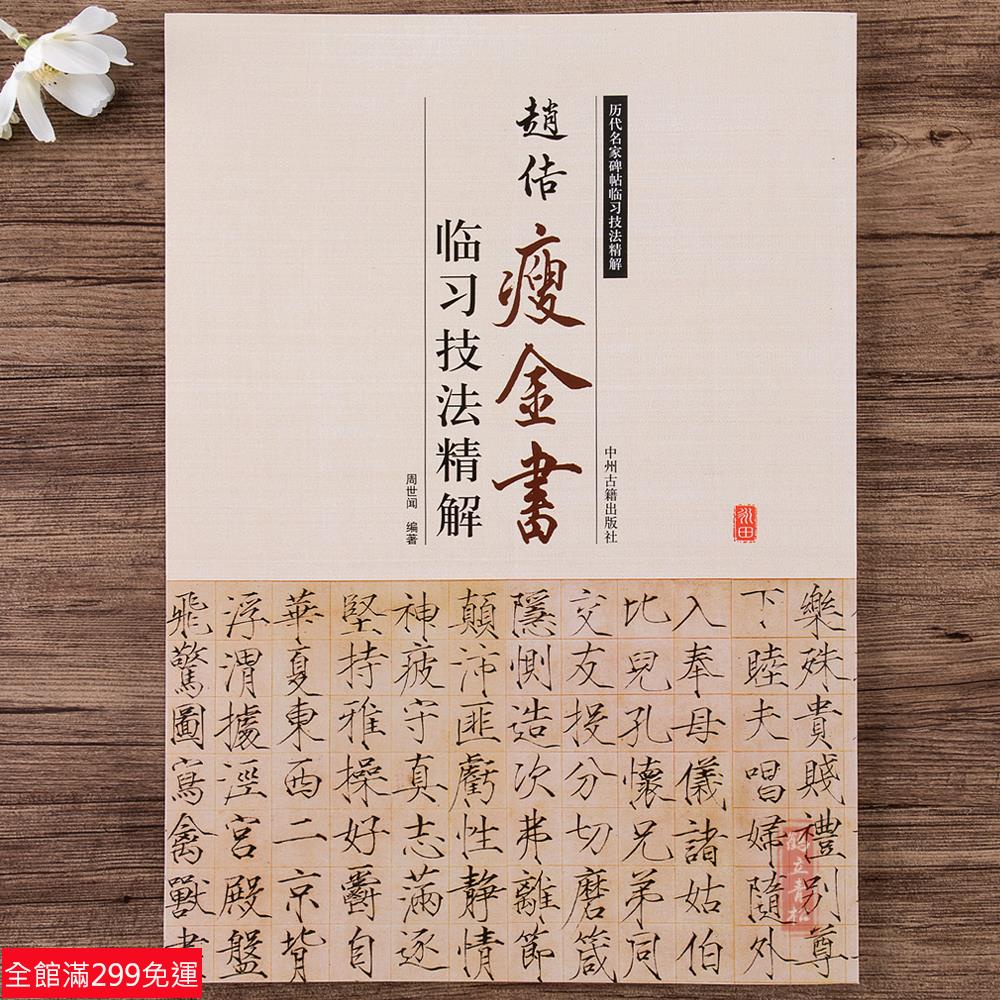 历代名家碑帖临习技法精解
中州古籍出版社
趙佶
瘦金書
临习技法精解
周世闻 编著
樂殊貴賤禮別尊
下睦夫唱婦隨外
入奉母儀諸姑伯
比兒孔懷兄弟同
交友投分切磨箴
隱惻造次弗離節
顛沛匪虧性靜情
神疲守真志滿逐
堅持雅操好爵自
華夏東西二京背
浮渭據涇宮殿盤
飛驚圖寫禽獸
鹤立青松
全館滿299免運